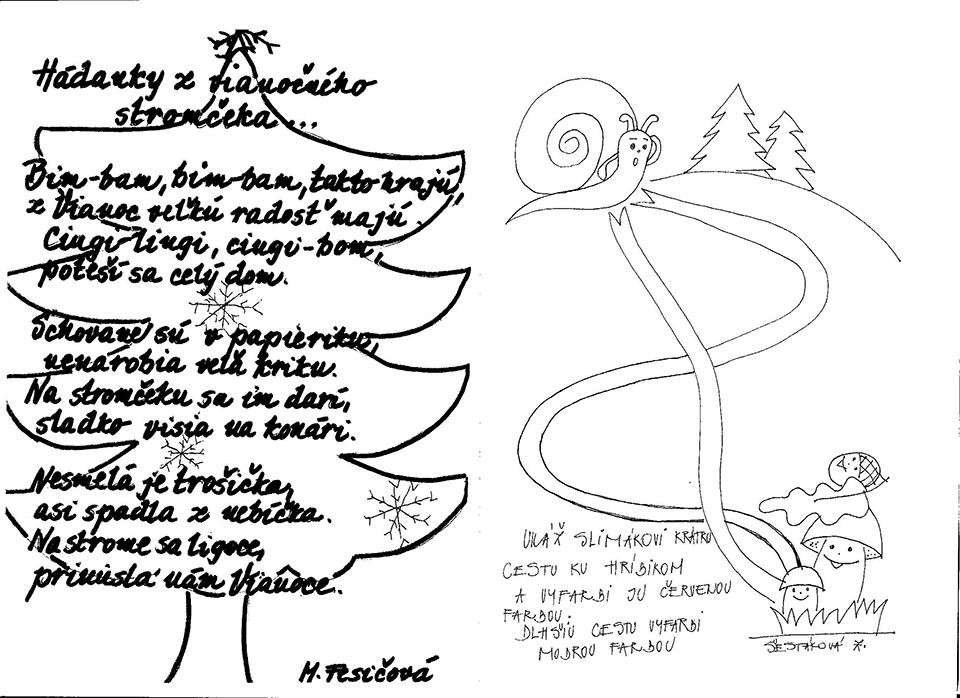 Hádanky z vianočního
stromčeka...
Bim-bam, bim-bam, takto hrajú,
z Vianoc veľkú radosť majú.
Cingi-lingi, cingi-bom,
poteší sa celý dom.
Schované sú v papieriku,
nenarobia veľa kriku.
Na stromčeku sa im darí,
sladko visia na konári.
Nesmelá je trošička,
asi spadla z nebíčka.
Na strome sa ligoce,
priniesla nám Vianoce.
M. Fesičová
UKÁŽ SLIMÁKOVI KRÁTKU
CESTU KU HRÍBIKOM
A VYFARBI JU ČERVENOU
FARBOU.
DLHŠIU CESTU VYFARBI
MODROU FARBOU
ŠESTÁKOVÁ Z.